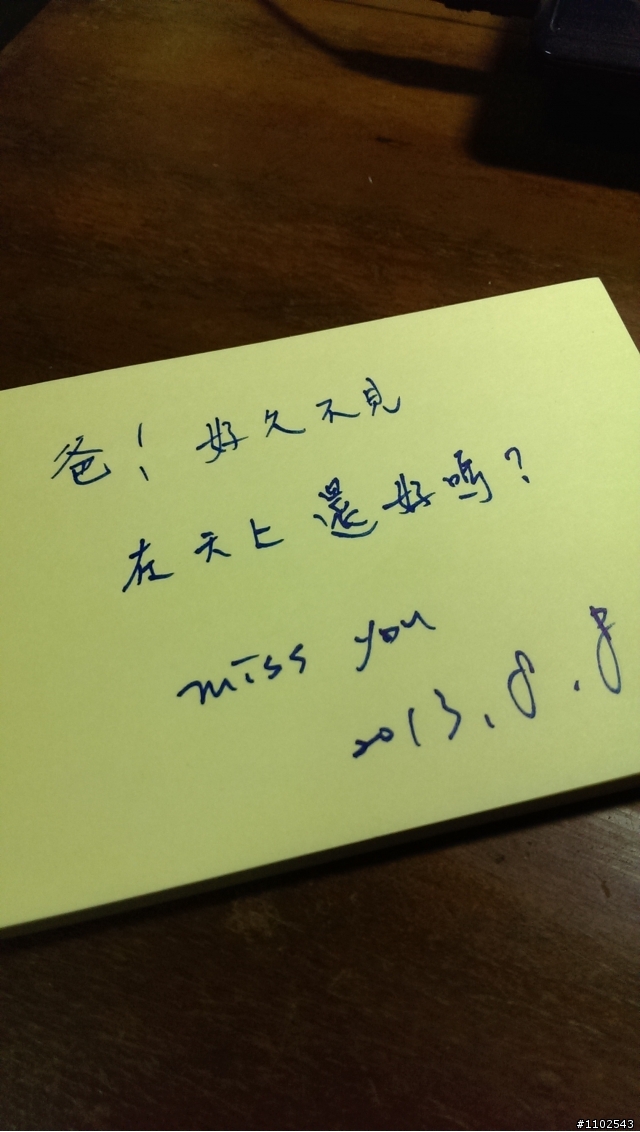 爸！好久不見
在天上還好嗎？
miss you
2013.8.8
#1102543